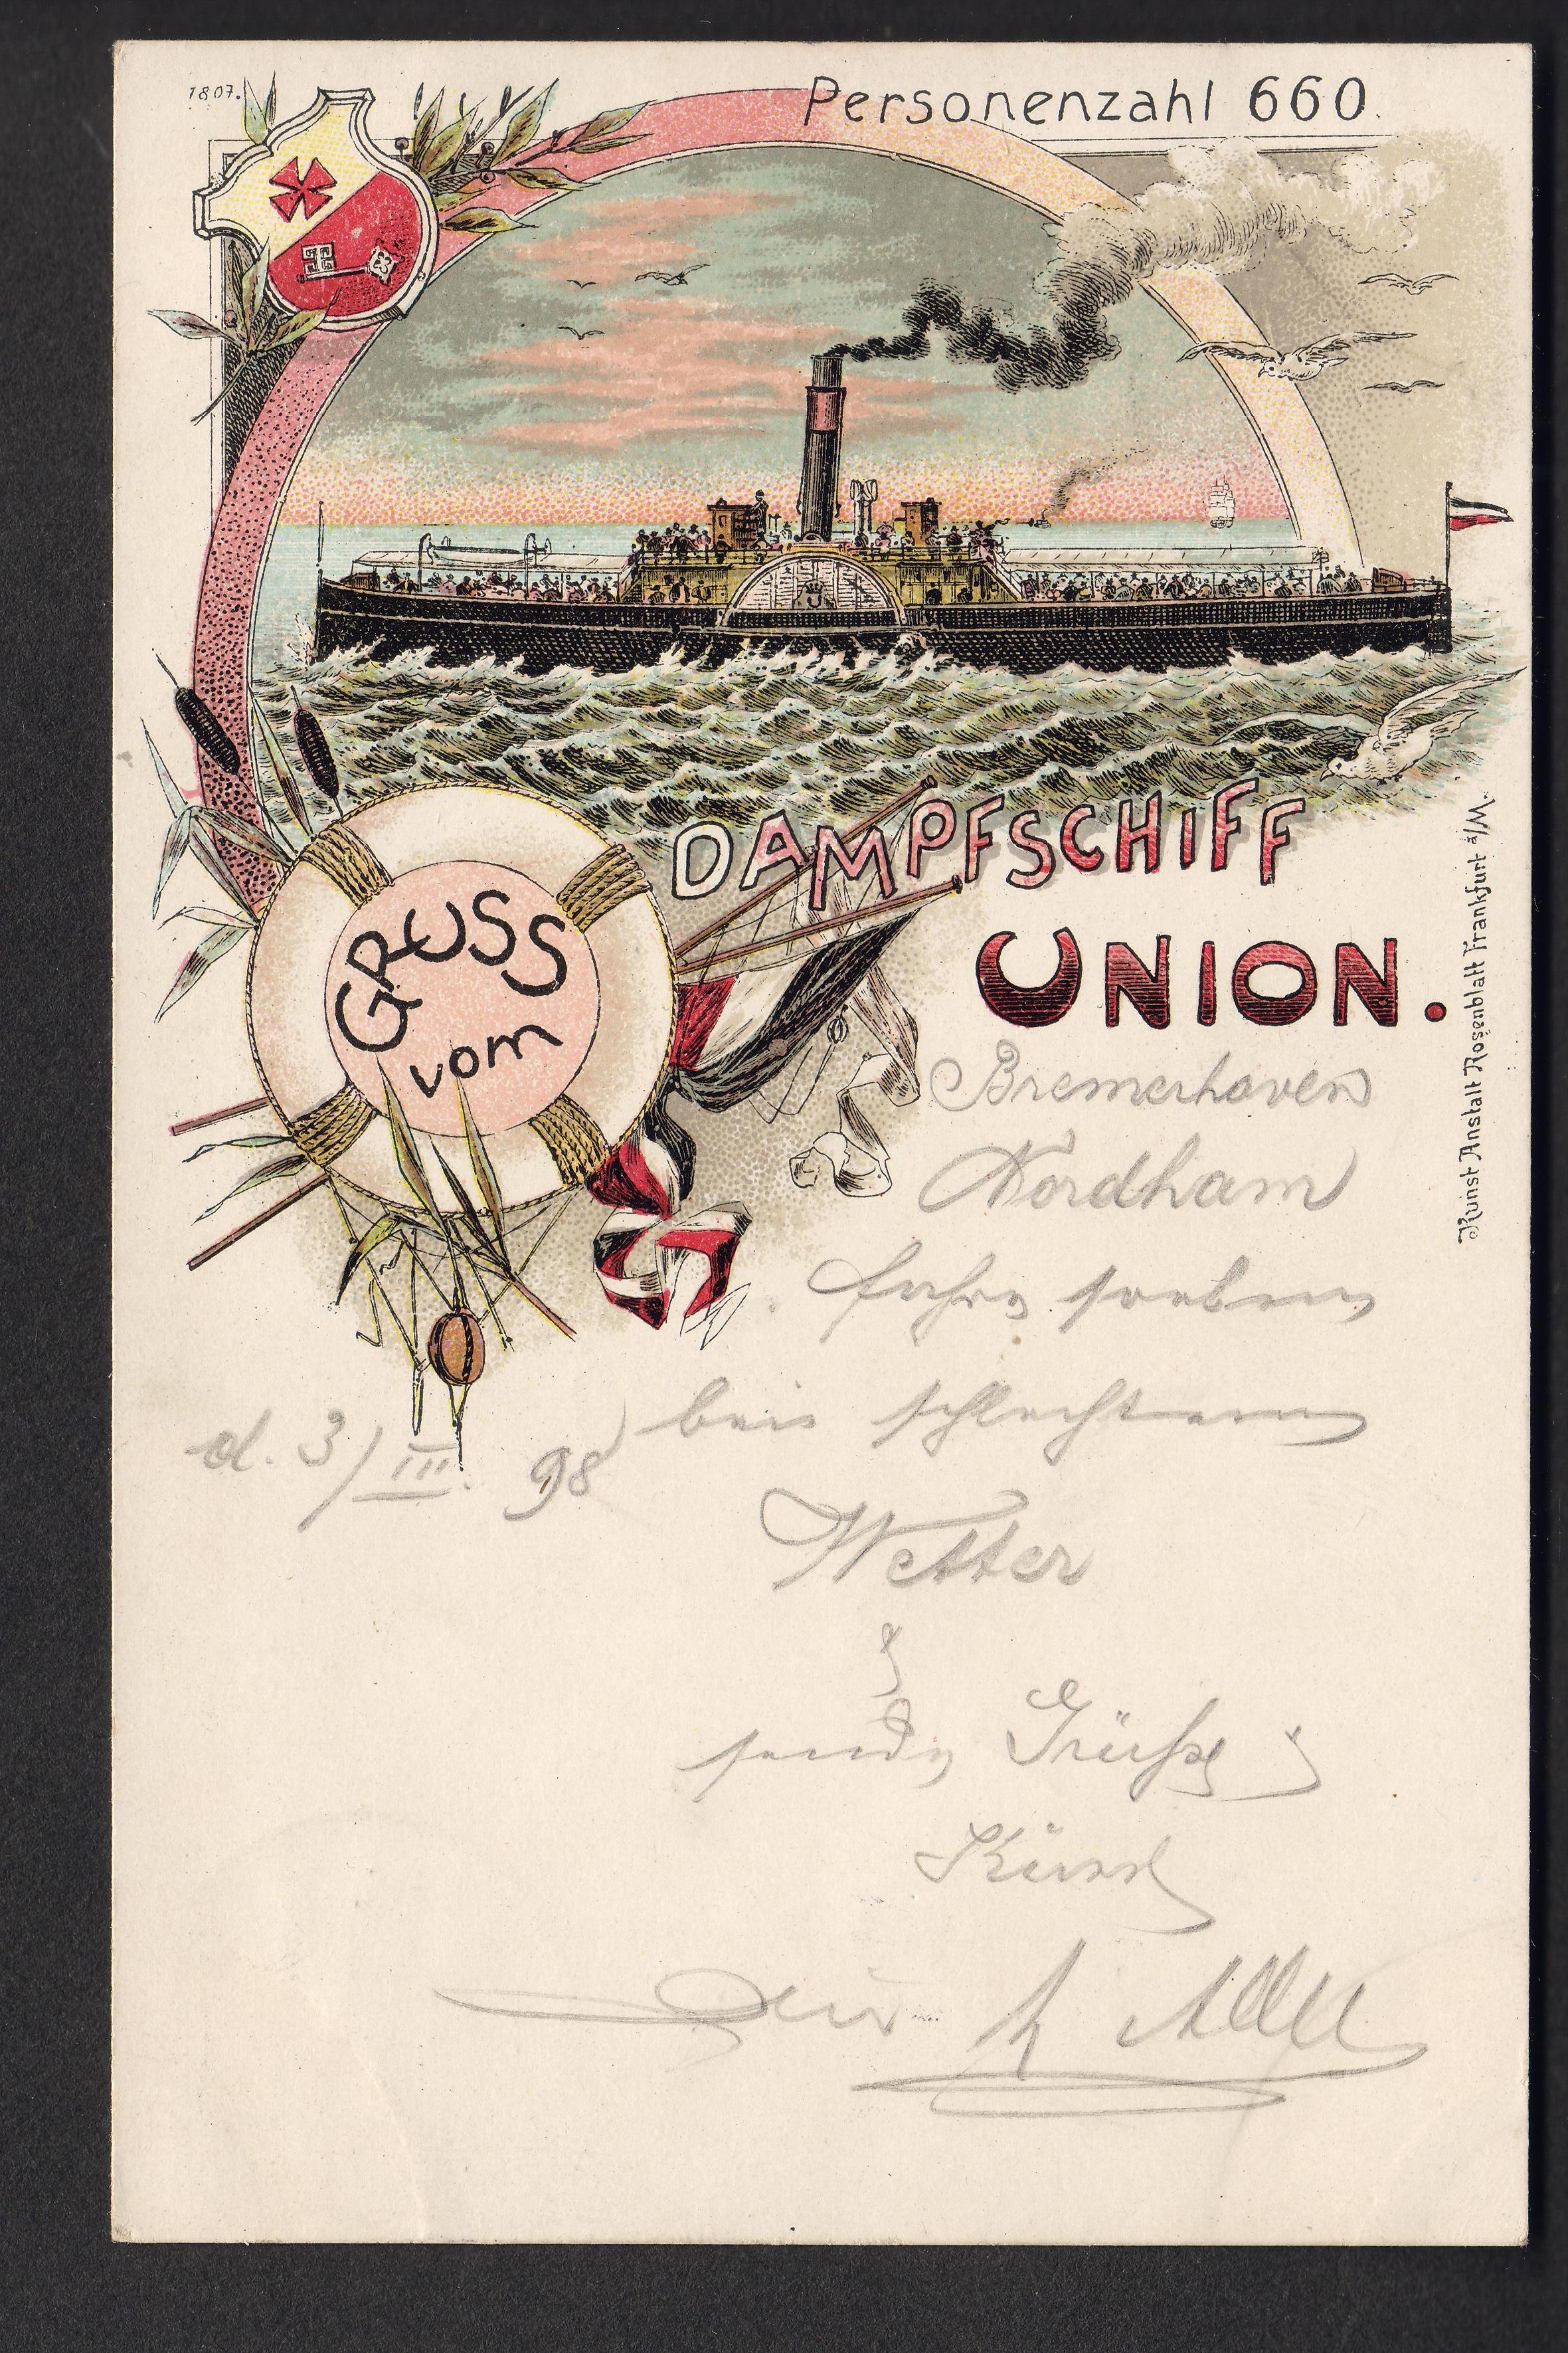 1807.
Personenzahl 660.
GRUSS
vom
DAMPFSCHIFF
UNION.
Kunst Anstalt Rosenblatt Frankfurt a/M.
Bremerhaven
Nordham
fahre soeben
bei schlechtem
d. 3/III. 98
Wetter
&
sende Grüße